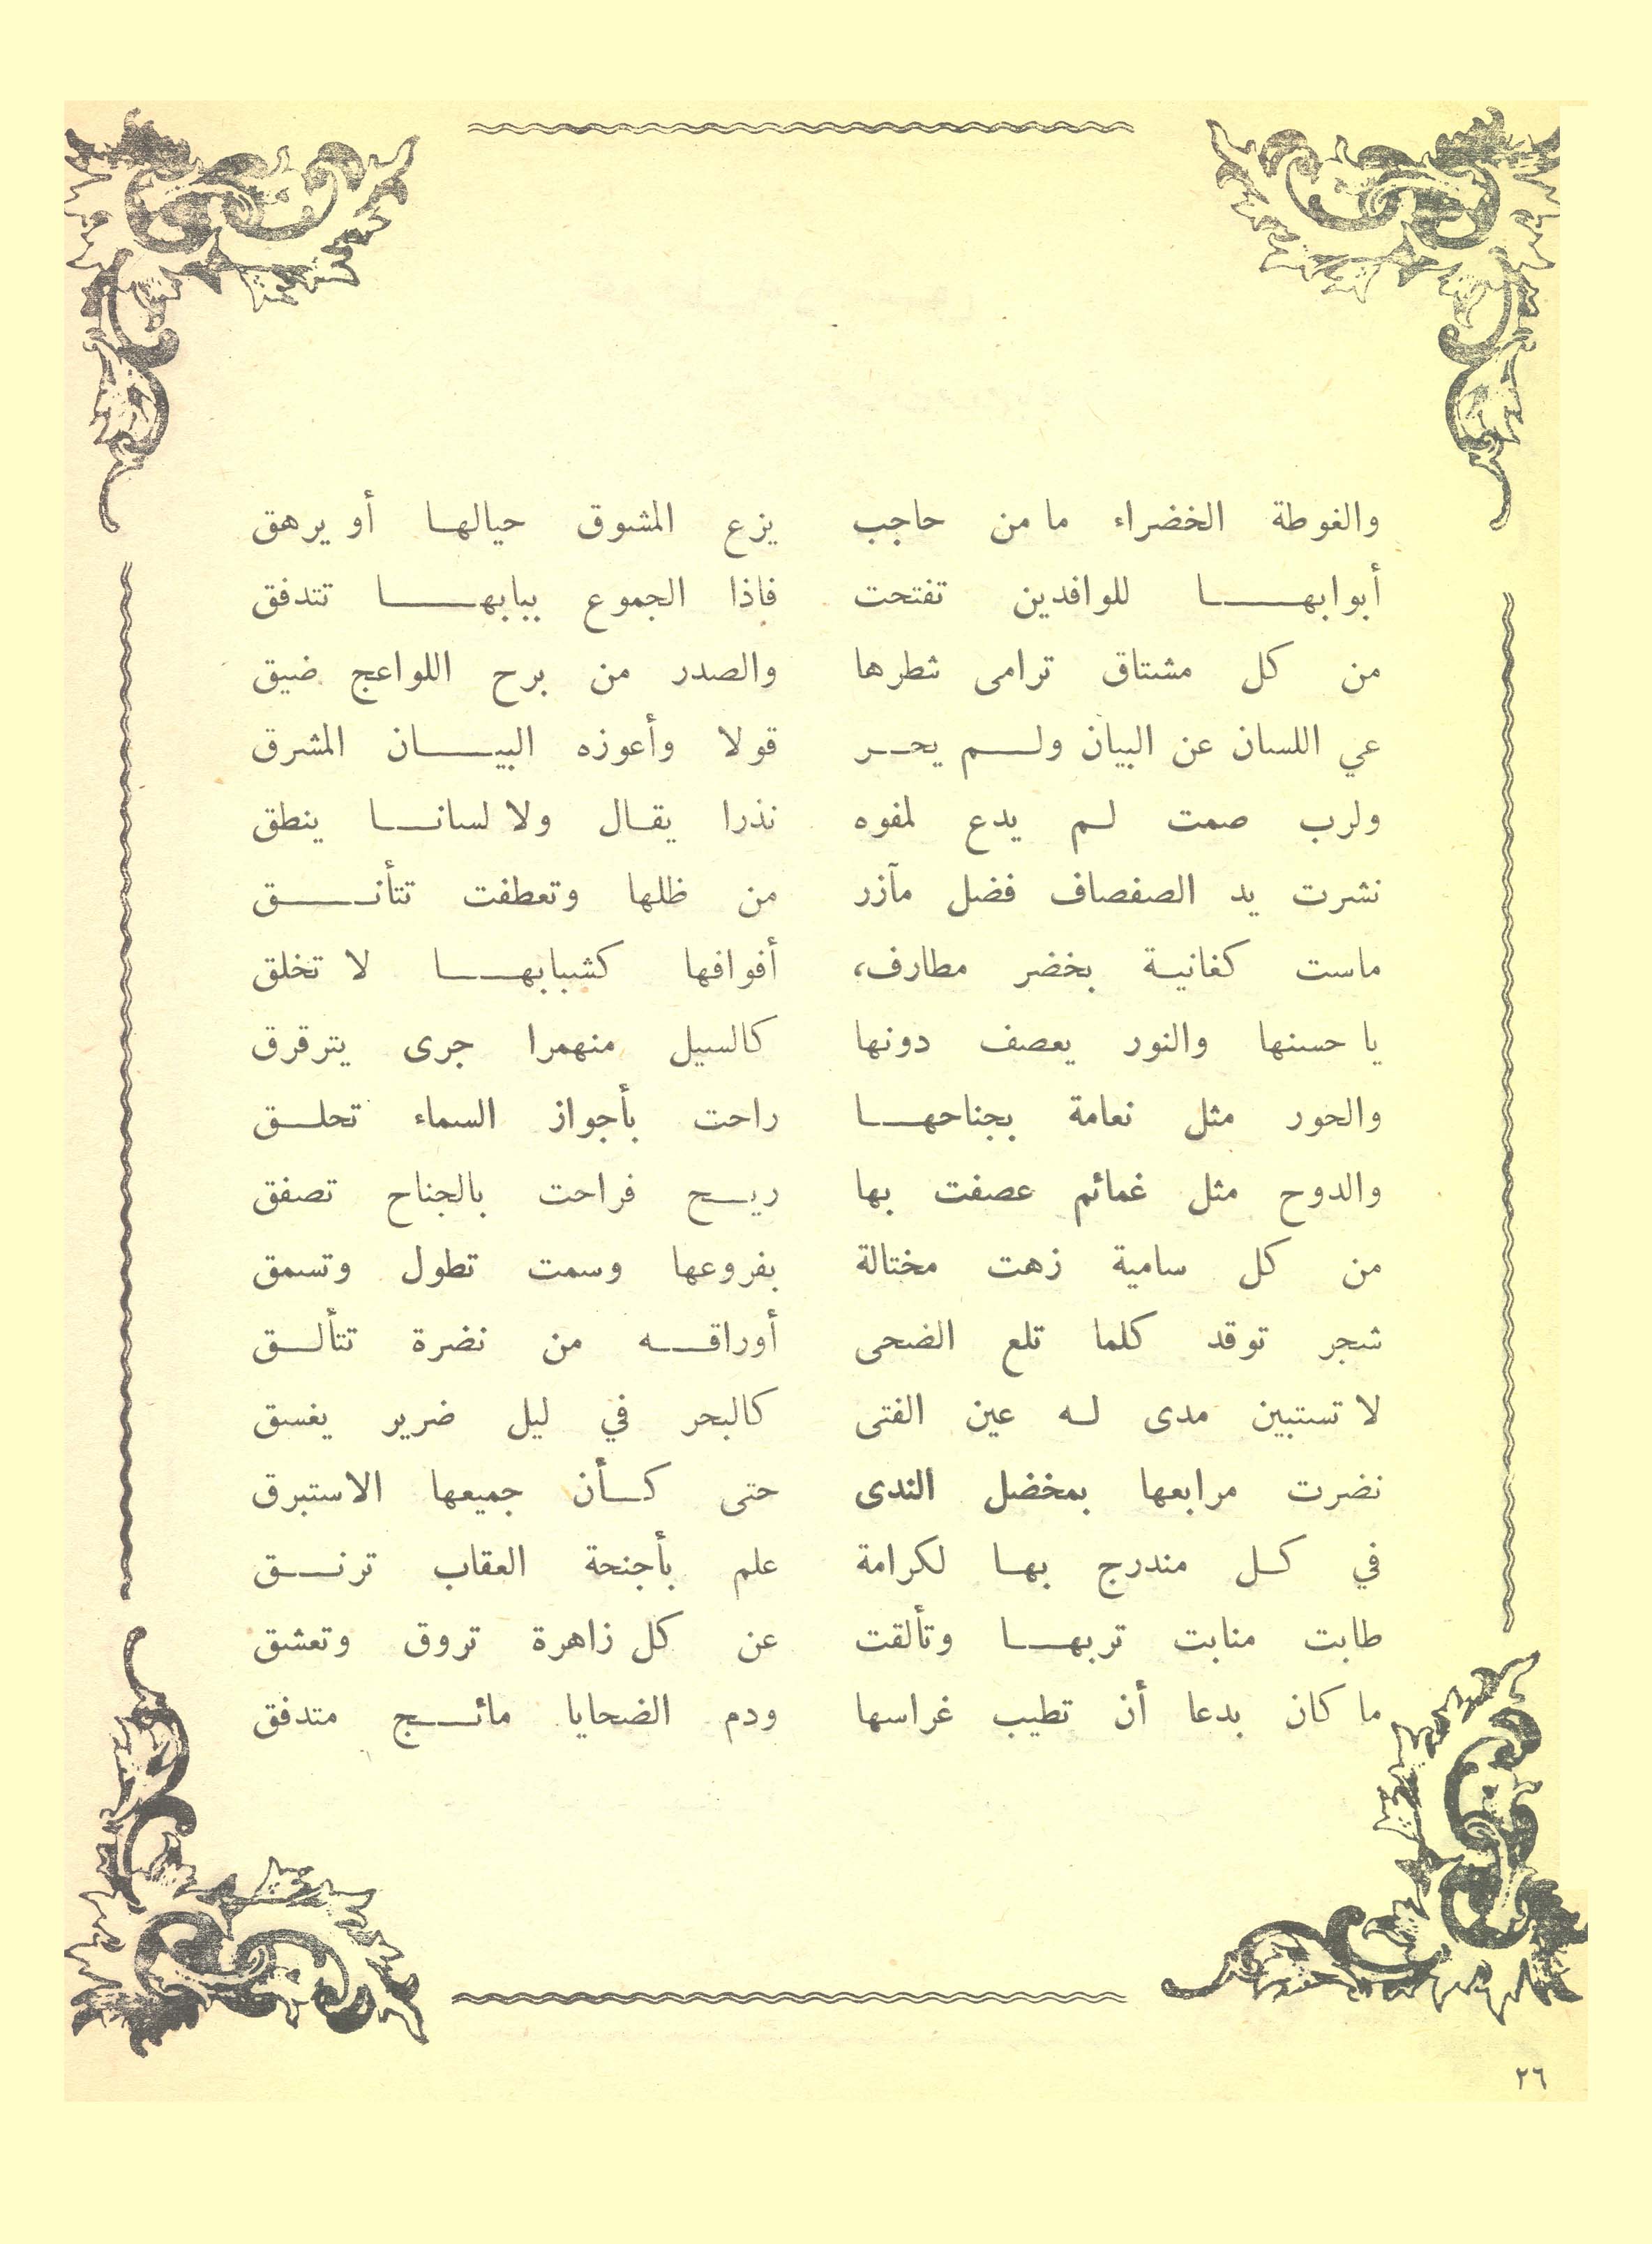 والغوطة الخضراء ما من حاجب يزع المشوق حيالها أو يرهق
أبوابها للوافدين تفتحت فاذا الجموع ببابها تتدفق
من كل مشتاق ترامى شطرها والصدر من برح اللواعج ضيق
عي اللسان عن البيان ولم يحر قولا وأعوزه البيان المشرق
ولرب صمت لم يدع لمفوه نذرا يقال ولا لسانا ينطق
نشرت يد الصفصاف فضل مآزر من ظلها وتعطفت تتأنق
ماست كغانية بخضر مطارف، أفوافها كشبابها لا تخلق
يا حسنها والنور يعصف دونها كالسيل منهمرا جرى يترقرق
والحور مثل نعامة بجناحها راحت بأجواز السماء تحلق
والدوح مثل غمائم عصفت بها ريح فراحت بالجناح تصفق
من كل سامية زهت مختالة بفروعها وسمت تطول وتسمق
شجر توقد كلما تلع الضحى أوراقه من نضرة تتألق
لا تستبين مدى له عين الفتى كالبحر في ليل ضرير يغسق
نضرت مرابعها بمخضل الندى حتى كأن جميعها الاستبرق
في كل مندرج بها لكرامة علم بأجنحة العقاب ترنق
طابت منابت تربها وتألقت عن كل زاهرة تروق وتعشق
ما كان بدعا أن تطيب غراسها ودم الضحايا مائج متدفق
٢٦